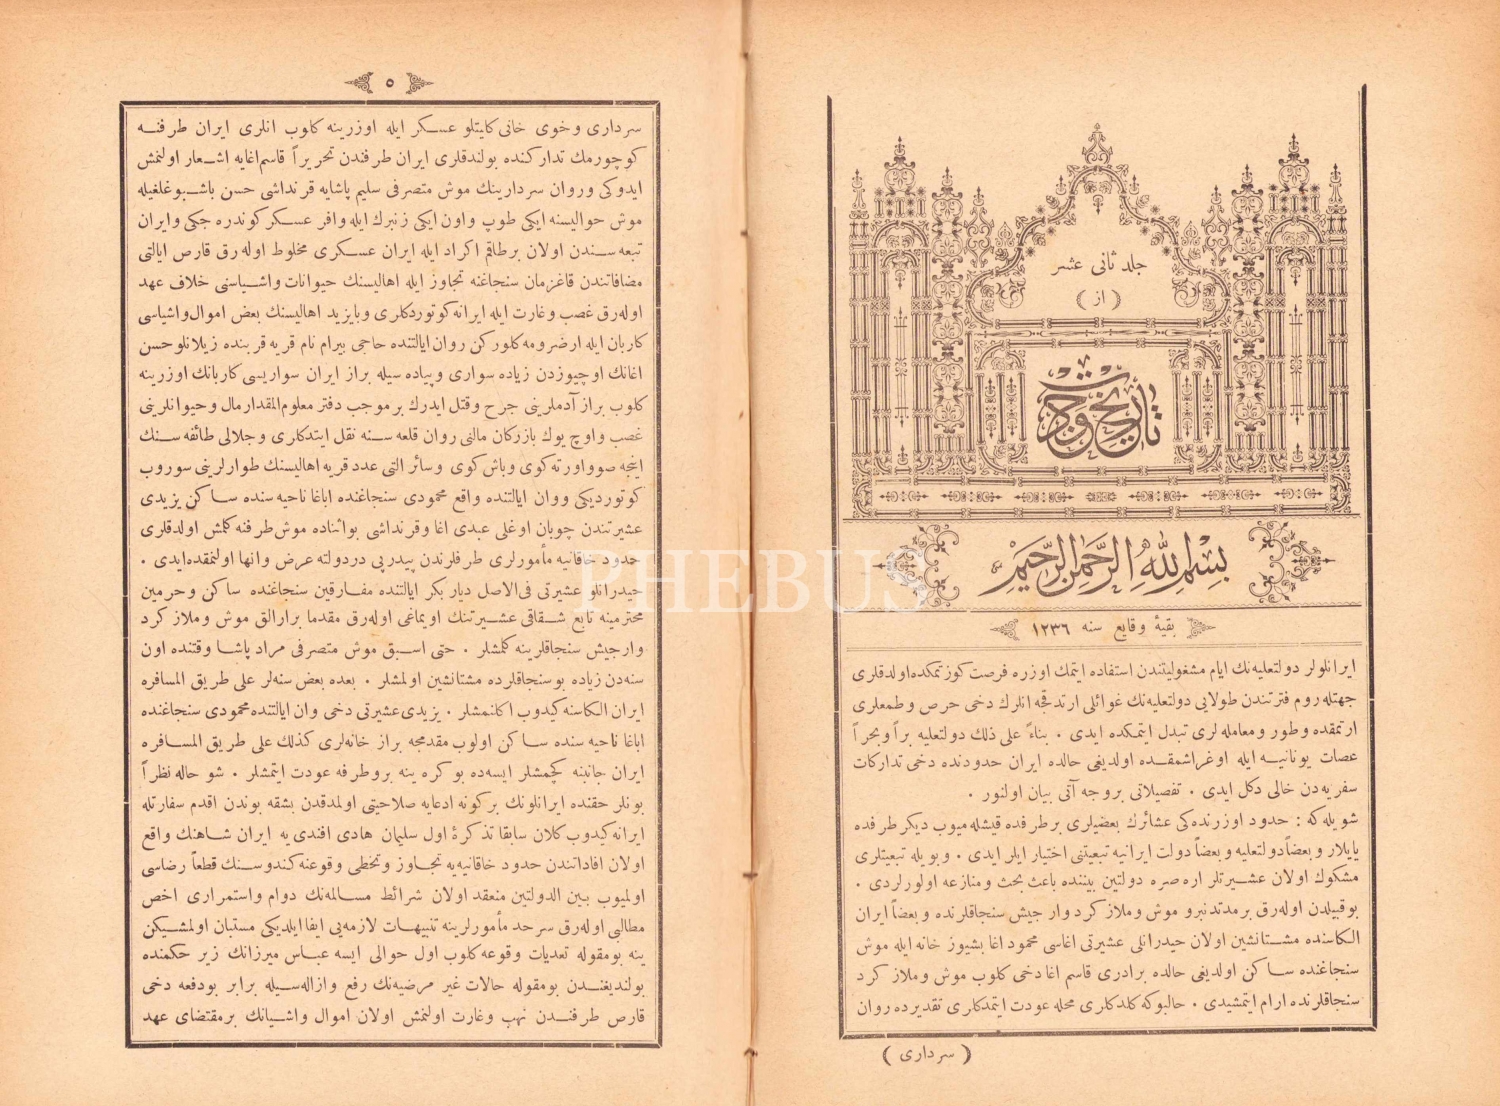 جلد ثانی عشر
( از )
تاریخ جودت
بسم الله الرحمن الرحیم
بقیهٔ وقایع سنه ١٢٣٦
ایرانلولر دولتعلیه‌نك ایام مشغولیتندن استفاده ایتمك اوزره فرصت کوزتمکده اولدقلری
جهتله روم فترتندن طولایی دولتعلیه‌نك غوائلی ارتدقجه انلرك دخی حرص و طمعلری
ارتمقده و طور و معامله لری تبدل ایتمکده ایدی . بناءً علی ذلك دولتعلیه براً و بحراً
عصات یونانیه ایله اوغراشمقده اولدیغی حالده ایران حدودنده دخی تدارکات
سفریه‌دن خالی دکل ایدی . تفصیلاتی بروجه آتی بیان اولنور .
شویله‌که : حدود اوزرنده‌کی عشائرك بعضیلری برطرفده قیشله‌میوب دیکر طرفده
یایلار و بعضاً دولتعلیه و بعضاً دولت ایرانیه تبعیتنی اختیار ایلر ایدی . و بویله تبعیتلری
مشکوك اولان عشیرتلر اره صره دولتین بیننده باعث بحث و منازعه اولورلردی .
بو قبیلدن اوله‌رق برمدتدنبرو موش و ملازکرد و ارجیش سنجاقلرنده و بعضاً ایران
الکاسنده مشتانشین اولان حیدرانلی عشیرتی اغاسی محمود اغا بشیوز خانه ایله موش
سنجاغنده ساکن اولدیغی حالده برادری قاسم اغا دخی کلوب موش و ملازکرد
سنجاقلرنده ارام ایتمشیدی . حالبوکه کلدکلری محله عودت ایتمدکلری تقدیرده روان
( سرداری )
٥
سرداری و خوی خانی کلیتلو عسکر ایله اوزرینه کلوب انلری ایران طرفنه
کوچورمك تدارکنده بولندقلری ایران طرفندن تحریراً قاسم‌اغایه اشعار اولنمش
ایدوکی و روان سردارینك موش متصرفی سلیم پاشایه قرنداشی حسن باشبوغلغیله
موش حوالیسنه ایکی طوپ و اون ایکی زنبرك ایله وافر عسکر کوندره جکی و ایران
تبعه سندن اولان برطاقم اکراد ایله ایران عسکری مخلوط اوله‌رق قارص ایالتی
مضافاتندن قاغزمان سنجاغنه تجاوز ایله اهالیسنك حیوانات و اشیاسنی خلاف عهد
اوله‌رق غصب و غارت ایله ایرانه کوتوردکلری و بایزید اهالیسنك بعض اموال و اشیاسی
کاربان ایله ارضرومه کلورکن روان ایالتنده حاجی بیرام نام قریه قربنده زیلانلو حسن
اغانك اوچیوزدن زیاده سواری و پیاده سیله براز ایران سواریسی کاربانك اوزرینه
کلوب براز آدملرینی جرح و قتل ایدرك بر موجب دفتر معلوم‌المقدار مال و حیوانلرینی
غصب و اوچ یوك بازرکان مالنی روان قلعه سنه نقل ایتدکلری و جلالی طائفه سنك
اینجه صو و اورته کوی و باش کوی و سائر التی عدد قریه اهالیسنك طوارلرینی سوروب
کوتوردیکی و وان ایالتنده واقع محمودی سنجاغنده اباغا ناحیه سنده ساکن یزیدی
عشیرتندن چوبان اوغلی عبدی اغا و قرنداشی بواثناده موش طرفنه کلمش اولدقلری
حدود خاقانیه مأمورلری طرفلرندن پیدرپی دردولته عرض و انها اولنمقده‌ایدی .
حیدرانلو عشیرتی فی‌الاصل دیاربکر ایالتنده مفارقین سنجاغنده ساکن و حرمین
محترمینه تابع شقاقی عشیرتنك اویماغی اوله‌رق مقدما برارالق موش و ملازکرد
و ارجیش سنجاقلرینه کلمشلر . حتی اسبق موش متصرفی مراد پاشا وقتنده اون
سنه‌دن زیاده بو سنجاقلرده مشتانشین اولمشلر . بعده بعض سنه‌لر علی طریق المسافره
ایران الکاسنه کیدوب اکلنمشلر . یزیدی عشیرتی دخی وان ایالتنده محمودی سنجاغنده
اباغا ناحیه سنده ساکن اولوب مقدمجه براز خانه‌لری کذلك علی طریق المسافره
ایران جانبنه کچمشلر ایسه‌ده بو کره ینه بروطرفه عودت ایتمشلر . شو حاله نظراً
بونلر حقنده ایرانلونك برکونه ادعایه صلاحیتی اولمدقدن بشقه بوندن اقدم سفارتله
ایرانه کیدوب کلان سابقا تذکرهٔ اول سلیمان هادی افندی یه ایران شاهنك واقع
اولان افاداتندن حدود خاقانیه‌یه تجاوز و تخطی وقوعنه کندوسنك قطعاً رضاسی
اولمیوب بین الدولتین منعقد اولان شرائط مسالمه‌نك دوام و استمراری اخص
مطالبی اوله‌رق سرحد مأمورلرینه تنبیهات لازمه‌یی ایفا ایلدیکی مستبان اولمشیکن
ینه بو مقوله تعدیات وقوعه کلوب اول حوالی ایسه عباس میرزانك زیر حکمنده
بولندیغندن بو مقوله حالات غیر مرضیه‌نك رفع و ازاله‌سیله برابر بودفعه دخی
قارص طرفندن نهب و غارت اولنمش اولان اموال و اشیانك برمقتضای عهد
PHEBUS